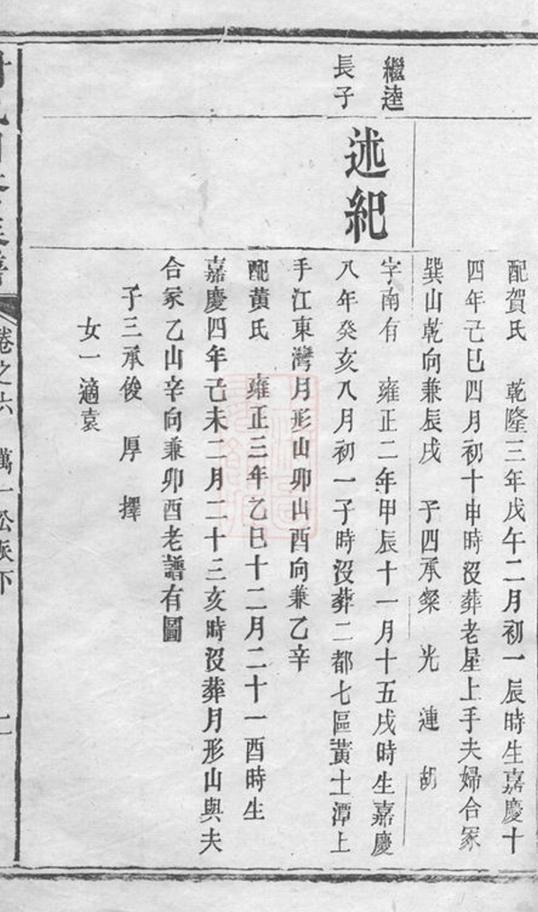 配賀氏 乾隆三年戊午二月初一辰時生嘉慶十
四年己巳四月初十申時沒葬老屋上手夫婦合冢
巽山乾向兼辰戌 子四承粲 光 連 胡
繼逵
長子
述紀
字南有 雍正二年甲辰十一月十五戌時生嘉慶
八年癸亥八月初一子時沒葬二都七區黃土潭上
手江東灣月形山卯山酉向兼乙辛
配黃氏 雍正三年乙巳十二月二十一酉時生
嘉慶四年己未二月二十三亥時沒葬月形山與夫
合冢乙山辛向兼卯酉老譜有圖
子三承俊 厚 擇
女一適袁
卷之六 萬一公族下